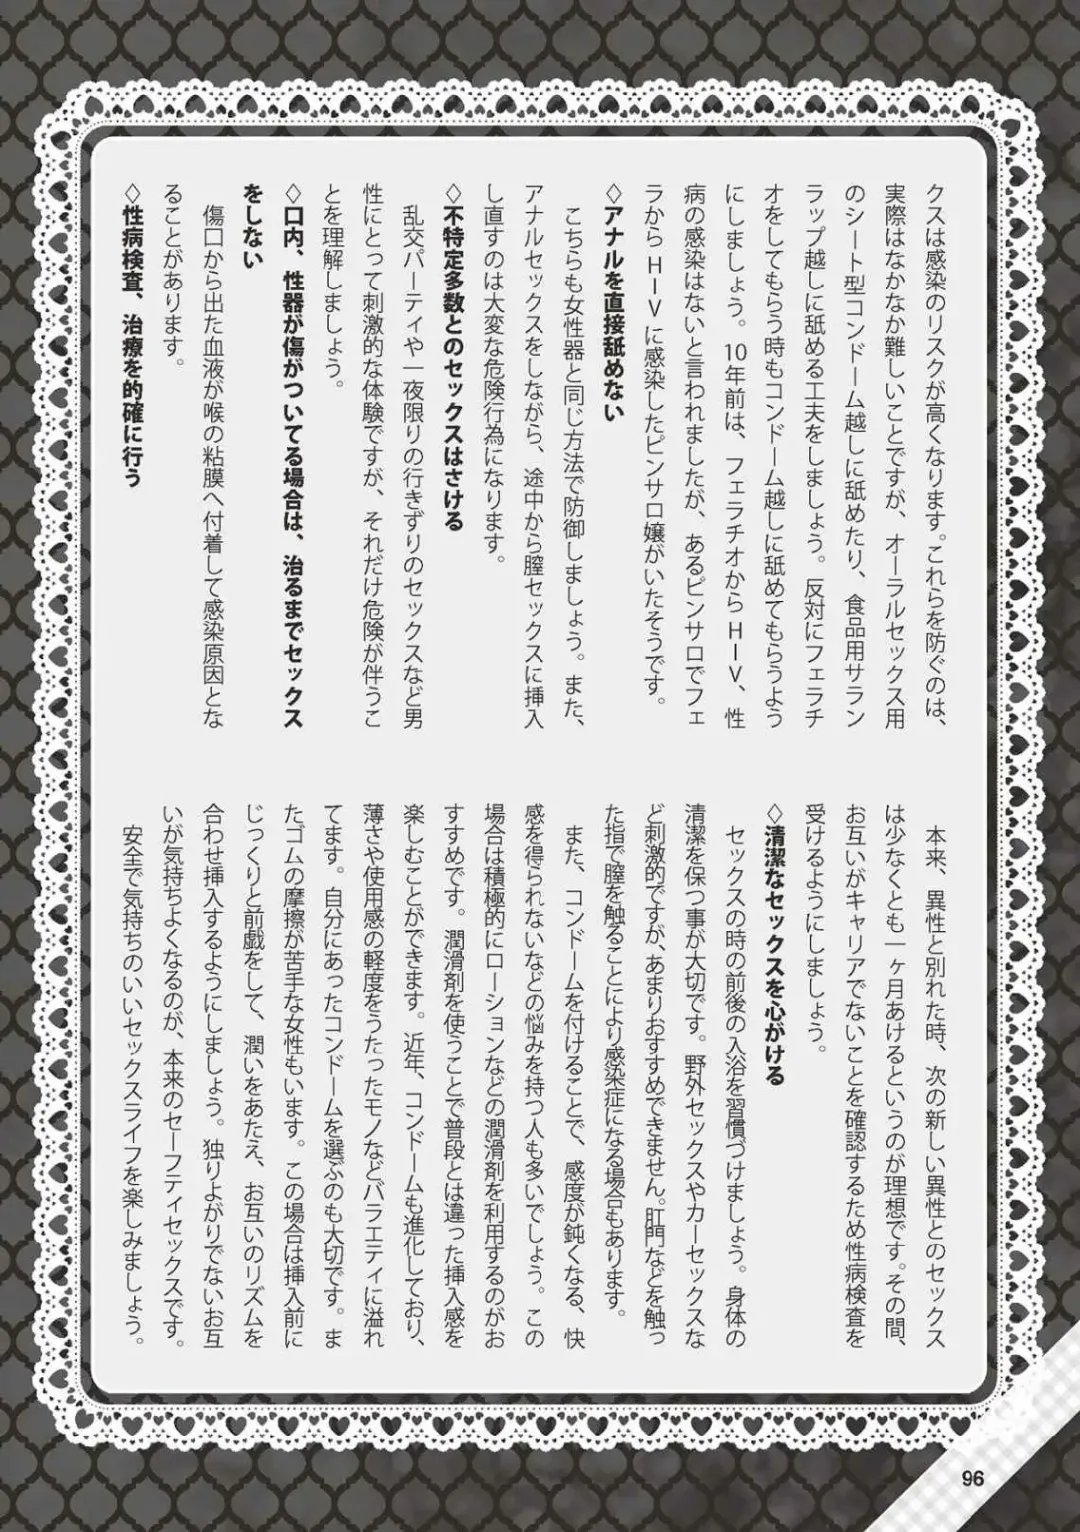 クスは感染のリスクが高くなります。これらを防ぐのは、
実際はなかなか難しいことですが、オーラルセックス用
のシート型コンドーム越しに舐めたり、食品用サラン
ラップ越しに舐める工夫をしましょう。反対にフェラチ
オをしてもらう時もコンドーム越しに舐めてもらうよう
にしましょう。10年前は、フェラチオからHIV、性
病の感染はないと言われましたが、あるピンサロでフェ
ラからHIVに感染したピンサロ嬢がいたそうです。
◇アナルを直接舐めない
こちらも女性器と同じ方法で防御しましょう。また、
アナルセックスをしながら、途中から膣セックスに挿入
し直すのは大変な危険行為になります。
◇不特定多数とのセックスはさける
乱交パーティや一夜限りの行きずりのセックスなど男
性にとって刺激的な体験ですが、それだけ危険が伴うこ
とを理解しましょう。
◇口内、性器が傷がついてる場合は、治るまでセックス
をしない
傷口から出た血液が喉の粘膜へ付着して感染原因とな
ることがあります。
◇性病検査、治療を的確に行う
本来、異性と別れた時、次の新しい異性とのセックス
は少なくとも一ヶ月あけるというのが理想です。その間、
お互いがキャリアでないことを確認するため性病検査を
受けるようにしましょう。
◇清潔なセックスを心がける
セックスの時の前後の入浴を習慣づけましょう。身体の
清潔を保つ事が大切です。野外セックスやカーセックスな
ど刺激的ですが、あまりおすすめできません。肛門などを触っ
た指で膣を触ることにより感染症になる場合もあります。
また、コンドームを付けることで、感度が鈍くなる、快
感を得られないなどの悩みを持つ人も多いでしょう。この
場合は積極的にローションなどの潤滑剤を利用するのがお
すすめです。潤滑剤を使うことで普段とは違った挿入感を
楽しむことができます。近年、コンドームも進化しており、
薄さや使用感の軽度をうたったモノなどバラエティに溢れ
てます。自分にあったコンドームを選ぶのも大切です。ま
たゴムの摩擦が苦手な女性もいます。この場合は挿入前に
じっくりと前戯をして、潤いをあたえ、お互いのリズムを
合わせ挿入するようにしましょう。独りよがりでないお互
いが気持ちよくなるのが、本来のセーフティセックスです。
安全で気持ちのいいセックスライフを楽しみましょう。
96